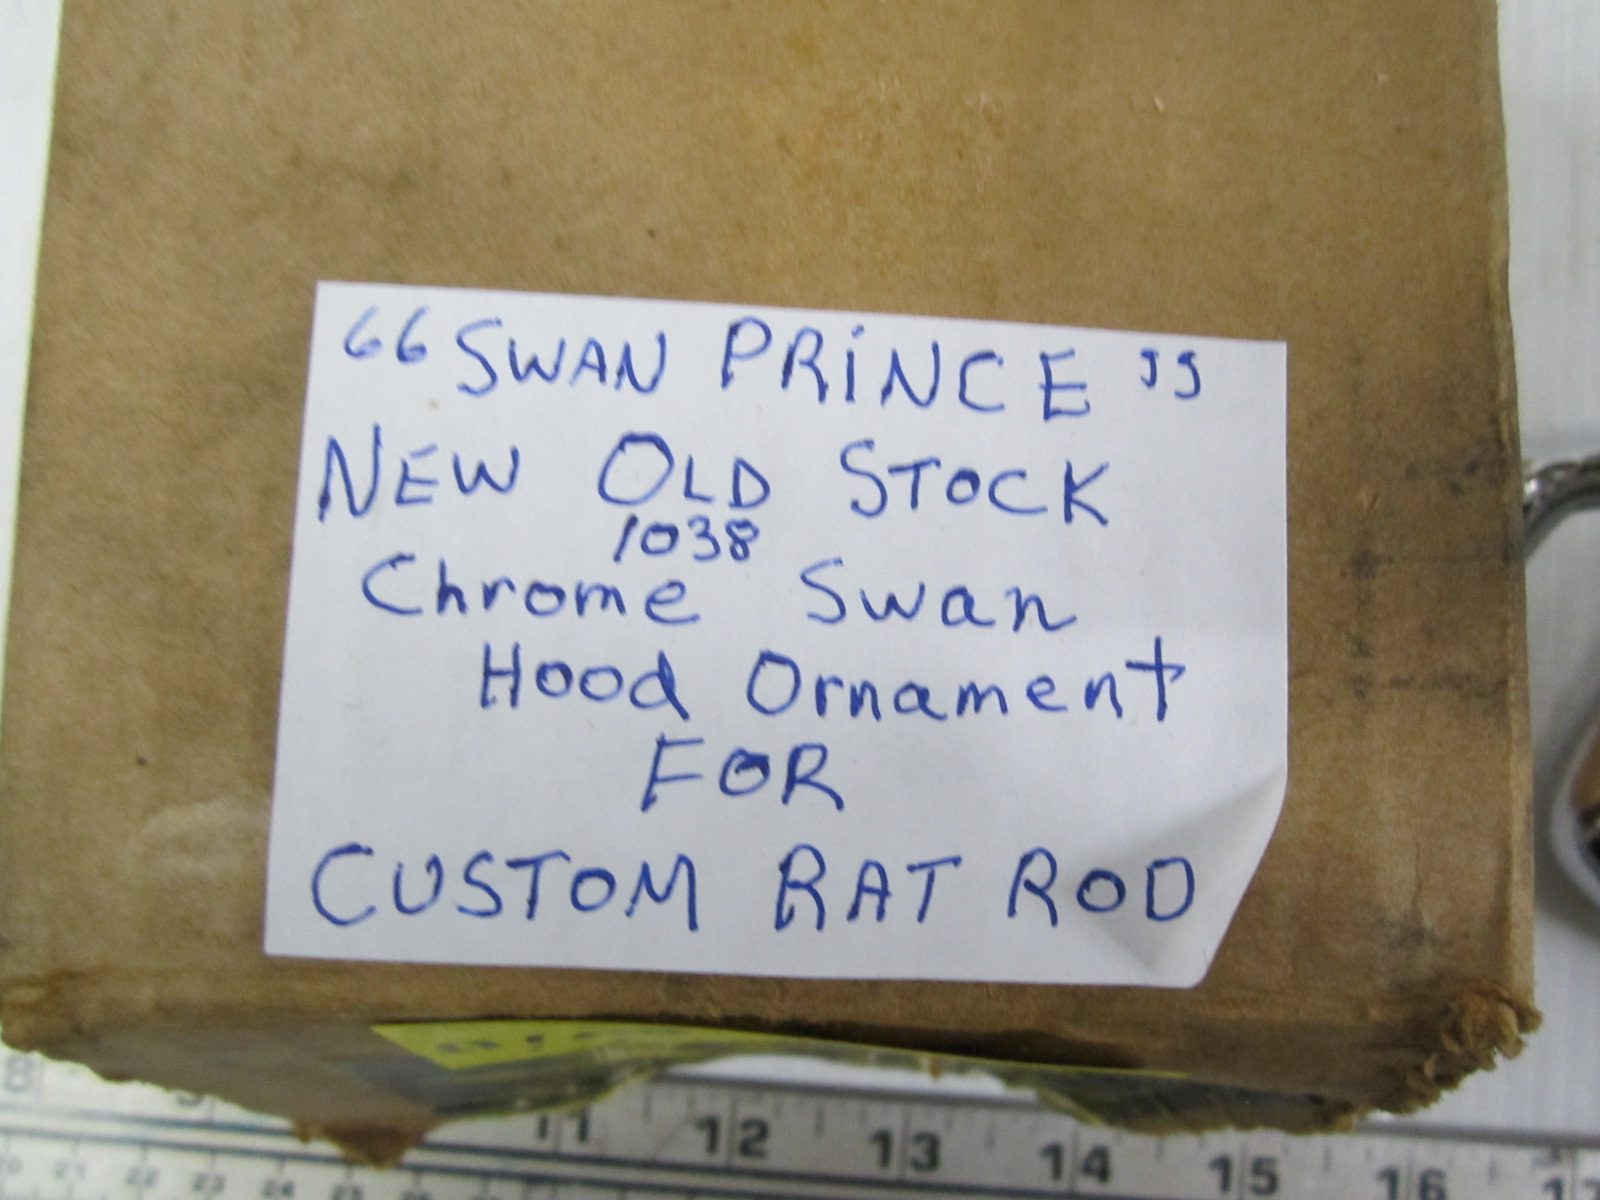 "SWAN PRINCE"
NEW OLD STOCK
1038
Chrome Swan
Hood Ornament
FOR
CUSTOM RAT ROD
11 12 13 14 15 16